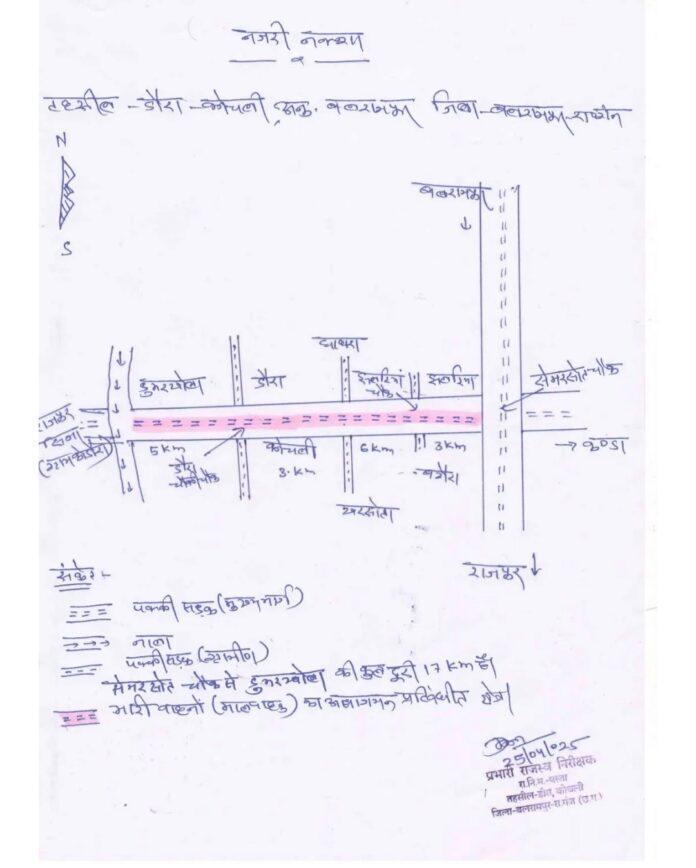 नजरी नक्शा
तहसील - डौरा - कोचली अनु. बलरामपुर जिला - बलरामपुर - रा०गंज
N
S
बलरामपुर
डुमरखोला
डौरा
चौक
सेमरसोत चौक
राजपुर
5 Km
कोचली
6 Km
3 Km
डौरा
3. Km
बगौरा
→ कण्डा
राजपुर
संकेत :-
पक्की सड़क (मुख्य मार्ग)
नाला
पक्की सड़क (ग्रामीण)
सेमरसोत चौक से डुमरखोला की कुल दूरी 17 Km है।
भारी वाहनों (मालवाहक) का आवागमन प्रतिबंधित क्षेत्र
25/04/025
प्रभारी राजस्व निरीक्षक
रा.नि.म.-
तहसील-डौरा, कोचली
जिला-बलरामपुर-रा.गंज (छ.ग.)